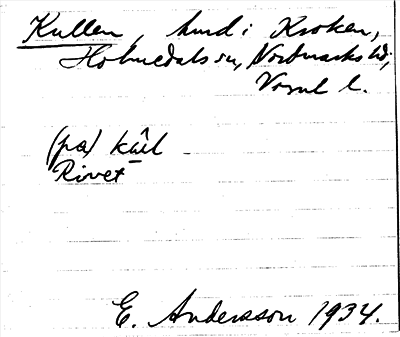 Kullen, hmd i Kroken,
Holmedals sn, Nordmarks hd,
Värml l.
(pa) kûl
Rivet
E. Andersson 1934.